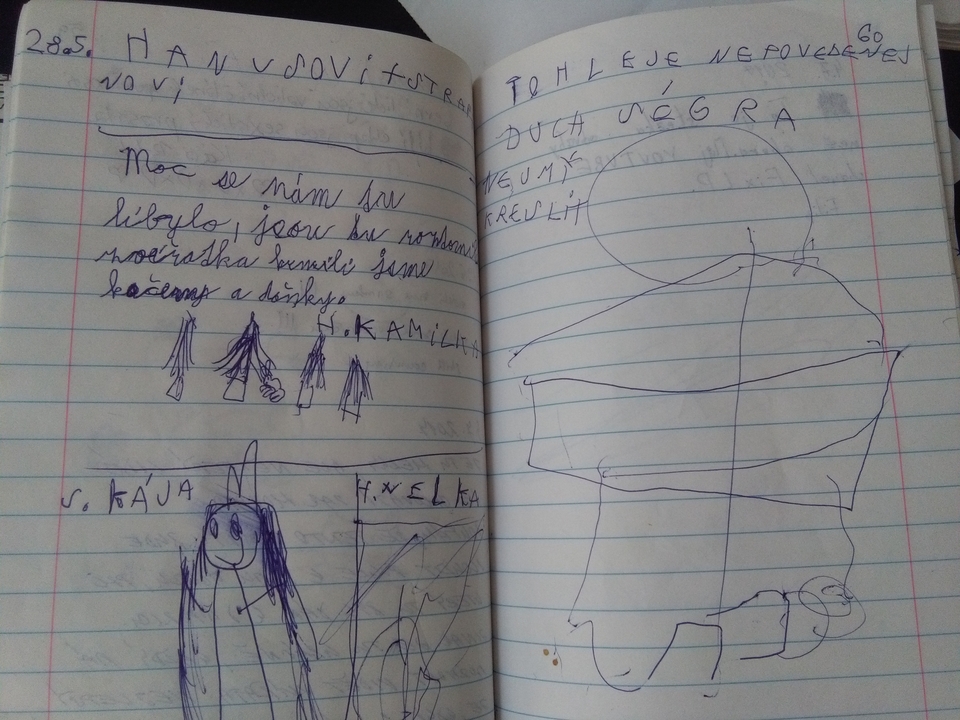 28.5. HANUSOVI + STRAP
NOVI
Moc se nám tu
líbylo, jsou tu roztomil
zvířátka krmili jsme
kačeny a dásky.
H. KAMILKA
S. KÁJA
H. NELKA
60
TOHLEJE NEPOVEDENEJ
DUCH SÉGRA
NEUMÝ
KRESLIT